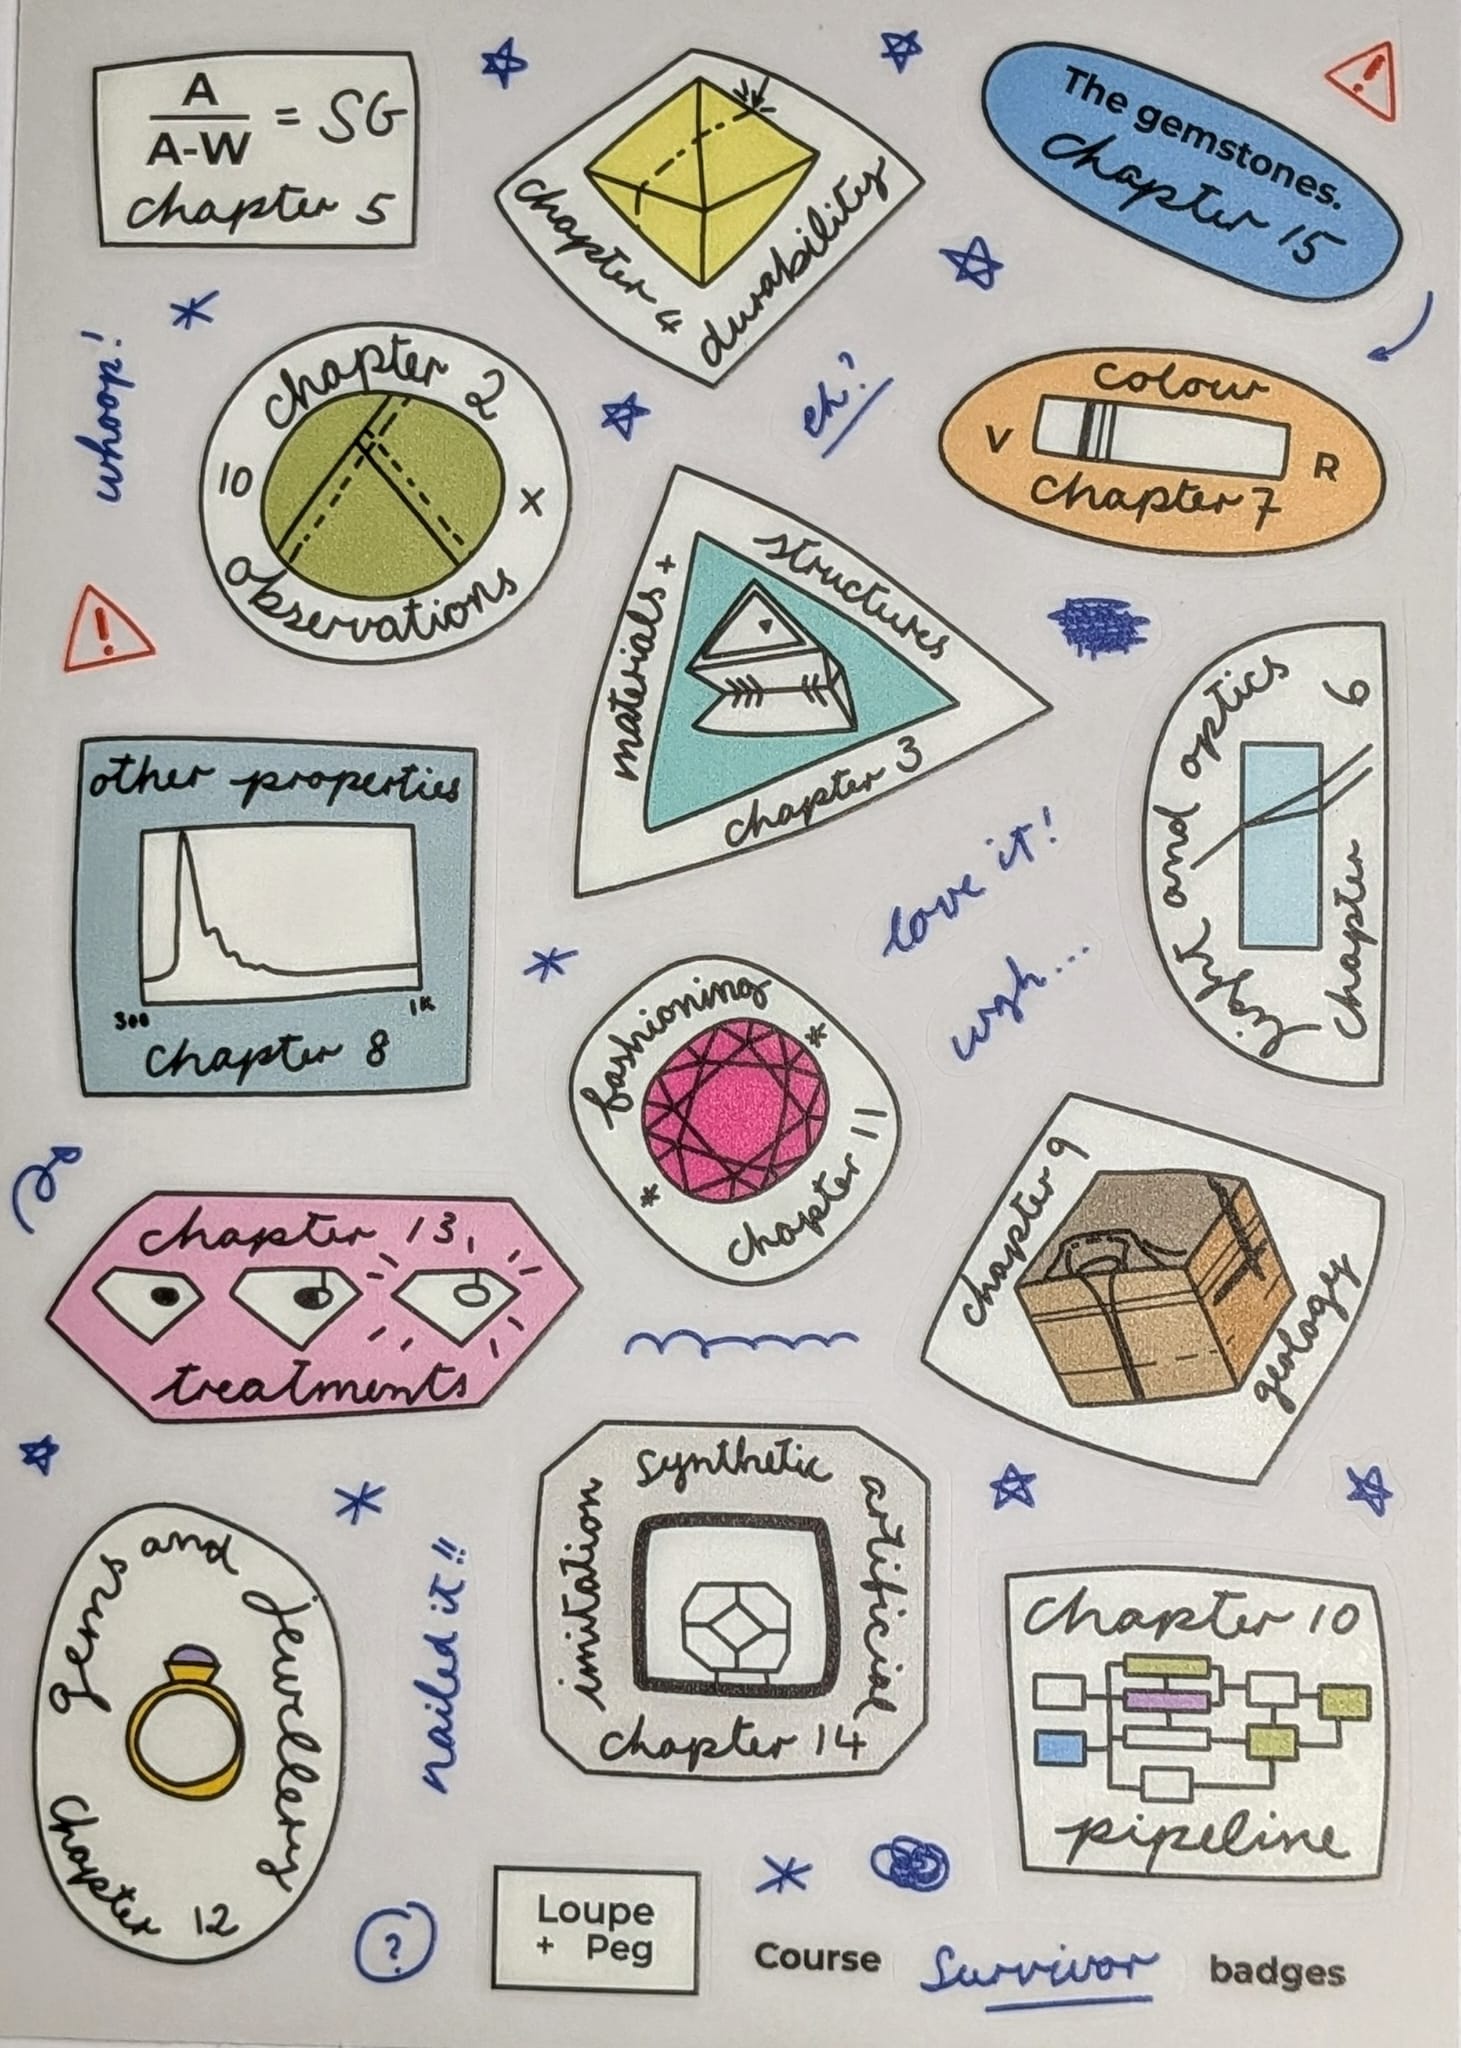 A
A-W
= SG
chapter 5
chapter 4
durability
The gemstones.
chapter 15
whoop!
chapter 2
10
x
observations
eh?
colour
V
R
chapter 7
materials +
structures
chapter 3
light and optics
chapter 6
other properties
300
1K
chapter 8
love it!
ugh...
fashioning
*
*
chapter 11
chapter 9
geology
chapter 13
treatments
synthetic
imitation
artificial
chapter 14
gems and jewellery
chapter 12
nailed it!!
chapter 10
pipeline
?
Loupe
+ Peg
Course Survivor badges